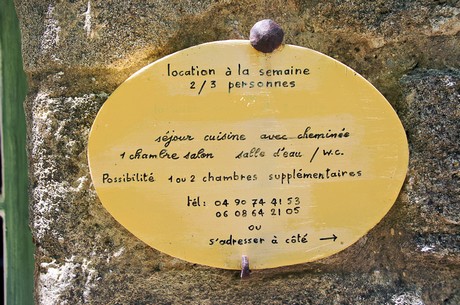 location à la semaine
2/3 personnes
séjour cuisine avec cheminée
1 chambre salon salle d'eau / w.c.
Possibilité 1 ou 2 chambres supplémentaires
tél: 04 90 74 41 53
06 08 64 21 05
ou
s'adresser à côté →